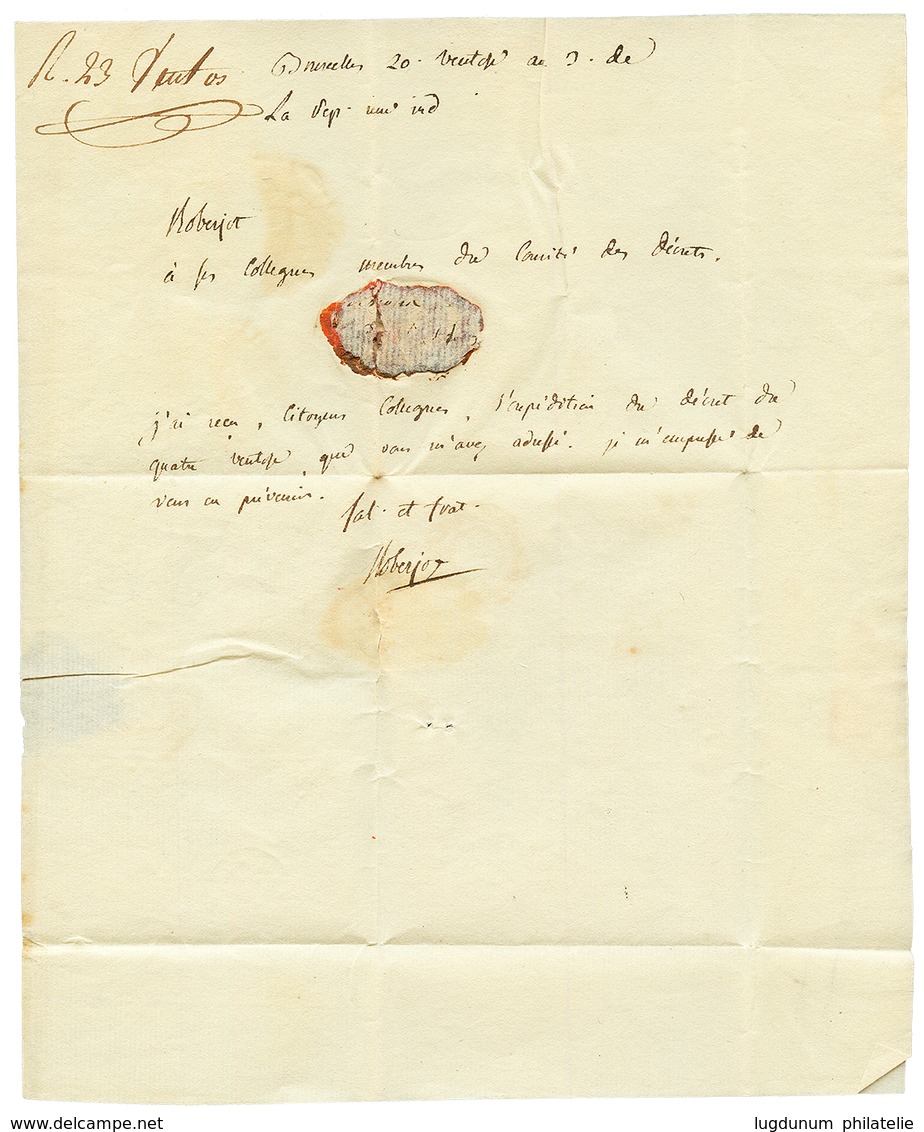 R. 23 Ventos
Bruxelles 20. ventose an 3. de
La Rep. une ind
Roberjot
à ses Collegues membres du Comité des décrets.
j'ai reçu, Citoyens Collegues, l'expédition du décret du
quatre ventose que vous m'avez adressé. je m'empresse de
vous en prévenir.
Sal. et frat.
Roberjot
www.delcampe.net
lugdunum philatelie